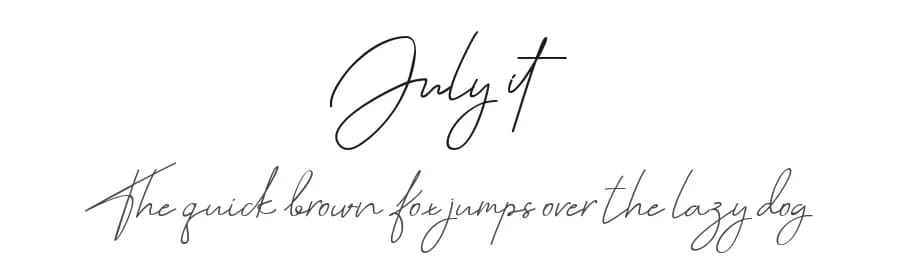 July it
The quick brown fox jumps over the lazy dog